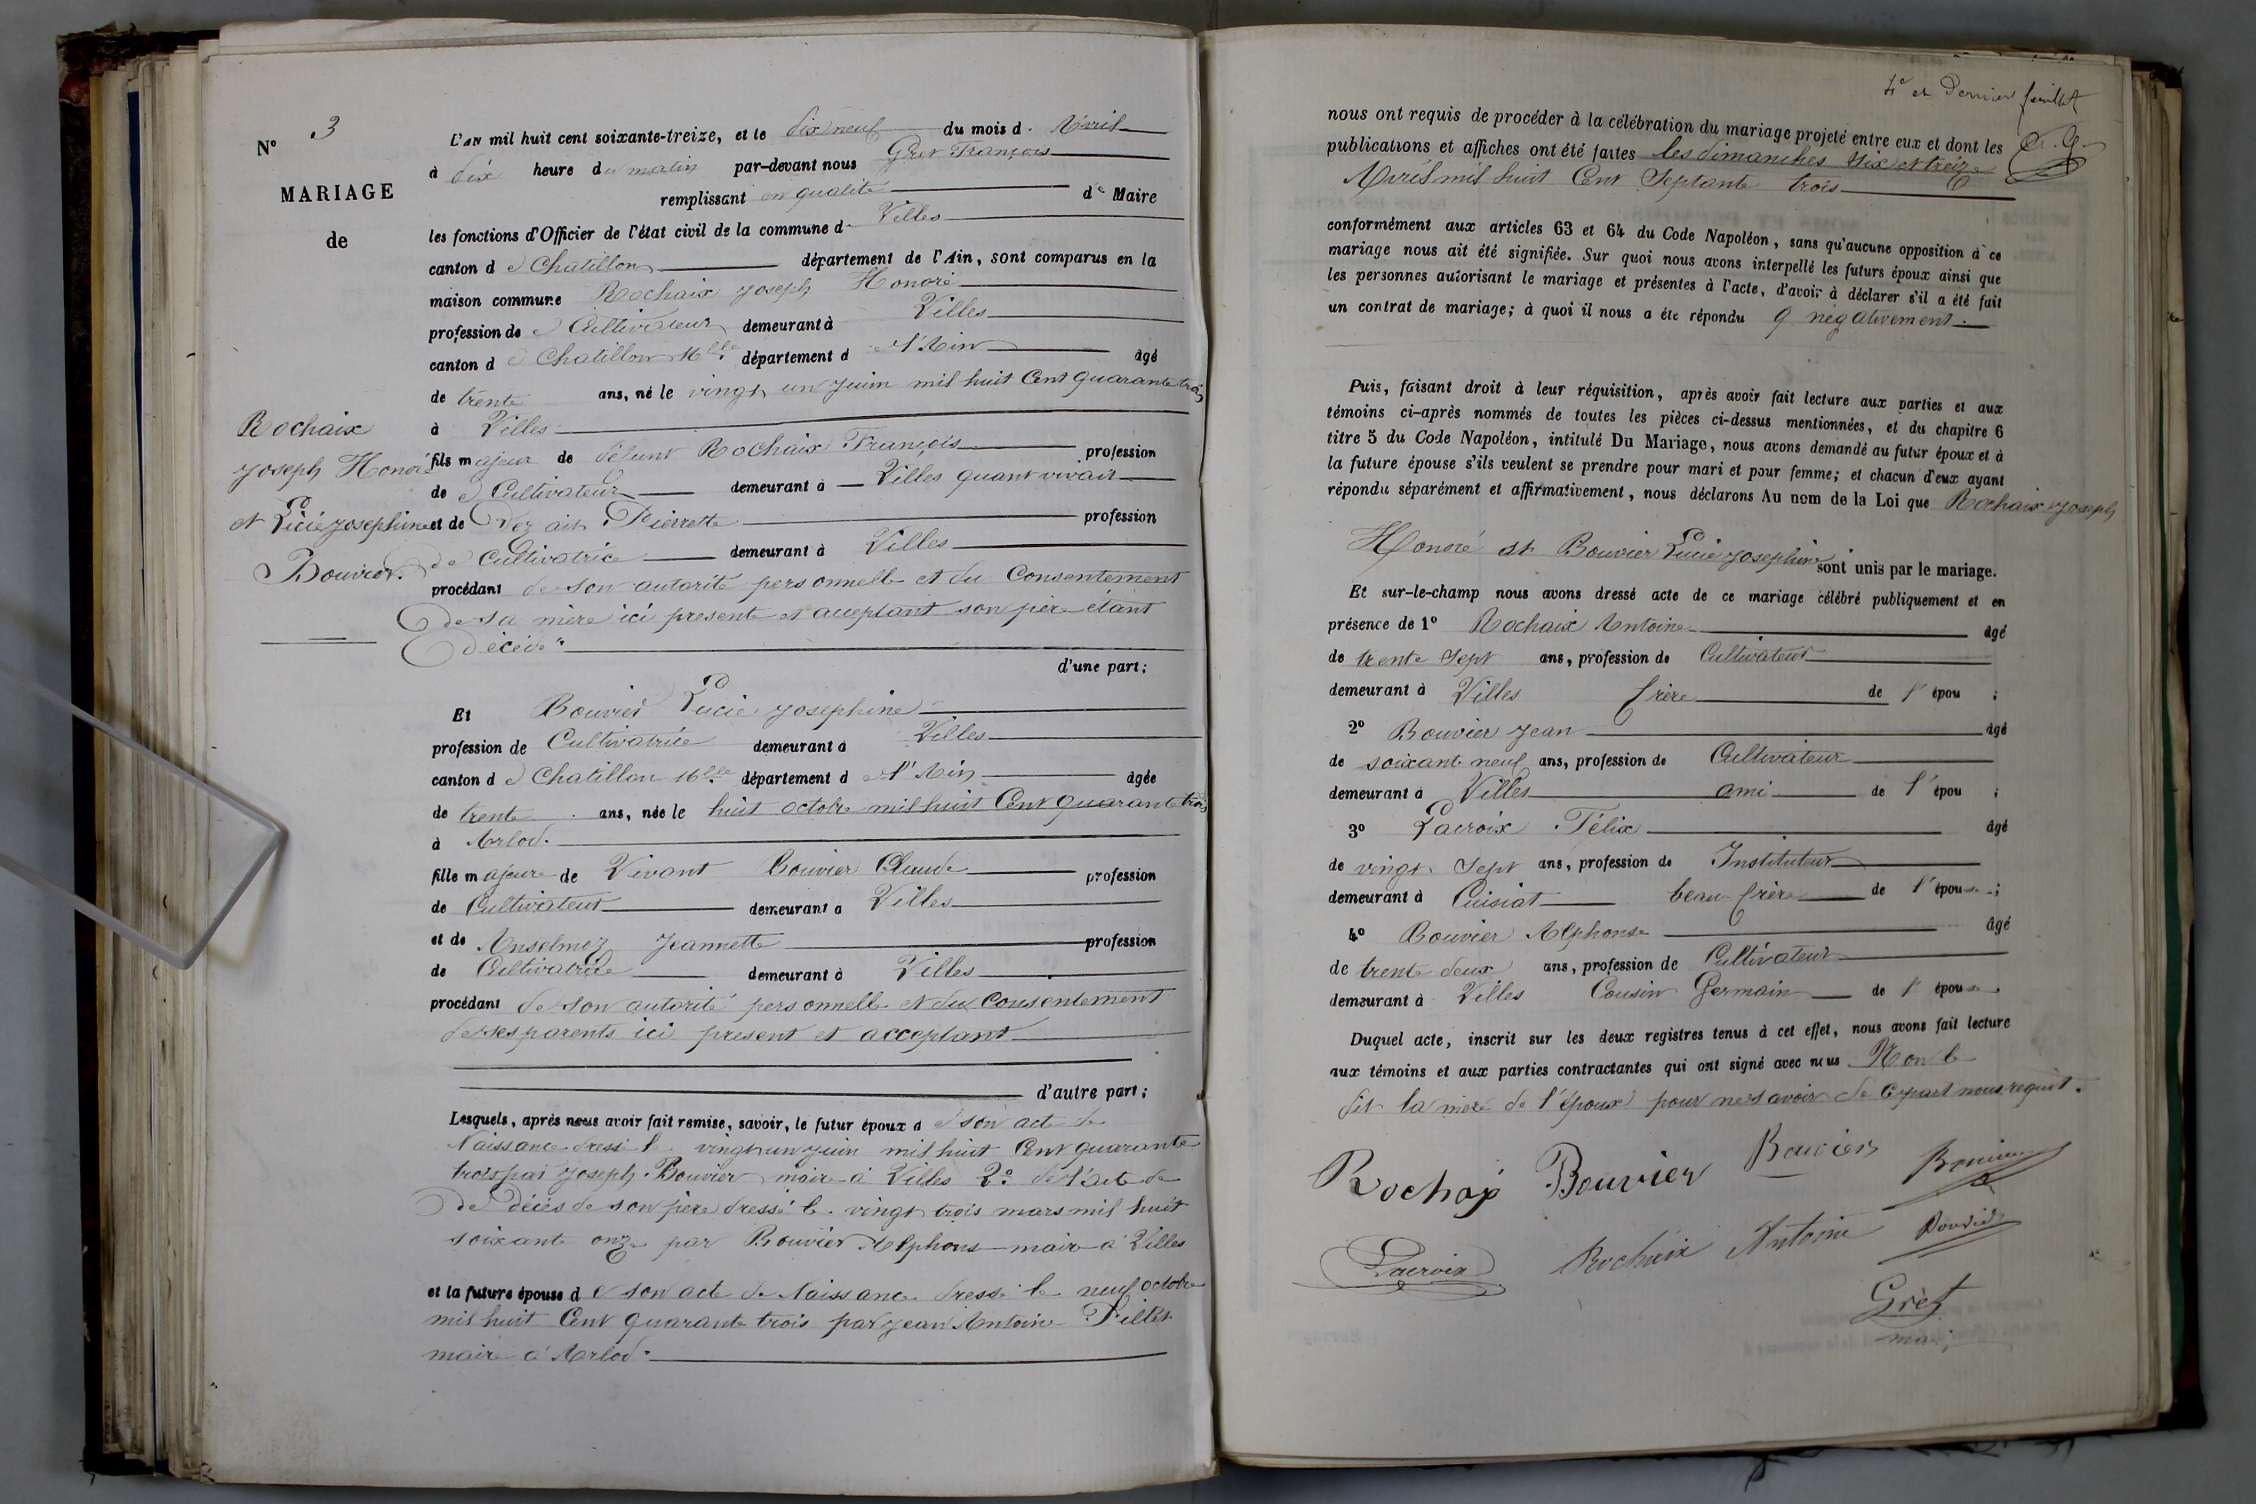 N° 3
MARIAGE
de
Rochaix
Joseph Honoré
et Lucie Josephine
Bouvier.
L'AN mil huit cent soixante-treize, et le dix neuf du mois d. Avril
à dix heure du matin par-devant nous Gret François
remplissant en qualité de Maire
les fonctions d'Officier de l'état civil de la commune d. Villes
canton d e Chatillon département de l'Ain, sont comparus en la
maison commune Rochaix Joseph Honoré
profession de Cultivateur demeurant à Villes
canton d e Chatillon département d e l'Ain âgé
de trente ans, né le vingt un Juin mil huit Cent quarante trois
à Villes
fils majeur de défunt Rochaix François profession
de Cultivateur demeurant à Villes quant vivait
et de Pierrette profession
de cultivatrice demeurant à Villes
procédant de son autorité personnelle et du Consentement
de sa mère ici presente et acceptant son père étant
décédé
d'une part;
Et Bouvier Lucie Josephine
profession de Cultivatrice demeurant à Villes
canton d e Chatillon département d e l'Ain âgée
de trente ans, née le huit octobre mil huit Cent quarante trois
à Arlod.
fille majeure de Vivant Bouvier Claude profession
de Cultivateur demeurant à Villes
et de Anselmoz Jeannette profession
de Cultivatrice demeurant à Villes
procédant de son autorité personnelle et du Consentement
de ses parents ici present et acceptant
d'autre part;
Lesquels, après nous avoir fait remise, savoir, le futur époux d e son acte de
Naissance dressé le vingt un juin mil huit Cent quarante
trois par Joseph Bouvier maire à Villes 2° de l'acte de
De décès de son père dressé le vingt trois mars mil huit
soixante onze par Bouvier Alphonse maire à Villes
et la future épouse d e son acte de Naissance dressé le neuf octobre
mil huit Cent quarante trois par Jean Antoine Pillet
maire à Arlod.
4e et Dernier feuillet
nous ont requis de procéder à la célébration du mariage projeté entre eux et dont les
publications et affiches ont été faites les dimanches six et treize
Avril mil huit Cent Septante trois
conformément aux articles 63 et 64 du Code Napoléon, sans qu'aucune opposition à ce
mariage nous ait été signifiée. Sur quoi nous avons interpellé les futurs époux ainsi que
les personnes autorisant le mariage et présentes à l'acte, d'avoir à déclarer s'il a été fait
un contrat de mariage; à quoi il nous a été répondu negativement.
Puis, faisant droit à leur réquisition, après avoir fait lecture aux parties et aux
témoins ci-après nommés de toutes les pièces ci-dessus mentionnées, et du chapitre 6
titre 5 du Code Napoléon, intitulé Du Mariage, nous avons demandé au futur époux et à
la future épouse s'ils veulent se prendre pour mari et pour femme; et chacun d'eux ayant
répondu séparément et affirmativement, nous déclarons Au nom de la Loi que Rochaix Joseph
Honoré et Bouvier Lucie Josephine sont unis par le mariage.
Et sur-le-champ nous avons dressé acte de ce mariage célébré publiquement et en
présence de 1° Rochaix Antoine âgé
de trente Sept ans, profession de Cultivateur
demeurant à Villes frère de l' épou ;
2° Bouvier Jean âgé
de soixante neuf ans, profession de Cultivateur
demeurant à Villes ami de l' épou ;
3° Lacroix Félix âgé
de vingt Sept ans, profession de Instituteur
demeurant à Cuisiat beau-frère de l' épouse ;
4° Bouvier Alphonse âgé
de trente deux ans, profession de Cultivateur
demeurant à Villes Cousin Germain de l' épouse.
Duquel acte, inscrit sur les deux registres tenus à cet effet, nous avons fait lecture
aux témoins et aux parties contractantes qui ont signé avec nous Non le
dit la mère de l'époux pour ne savoir de ce part nous requit.
Rochaix Bouvier Bouvier Bouvier
Lacroix Rochaix Antoine Bouvier
Grèt
maire